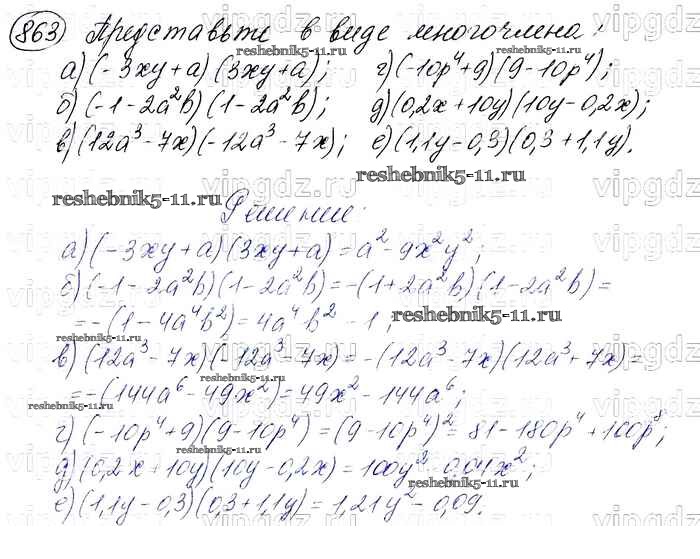 863 Представьте в виде многочлена:
а) (-3xy+a)(3xy+a); г) (-10p⁴+9)(9-10p⁴);
б) (-1-2a²b)(1-2a²b); д) (0,2x+10y)(10y-0,2x);
в) (12a³-7x)(-12a³-7x); е) (1,1y-0,3)(0,3+1,1y).
reshebnik5-11.ru
Решение:
а) (-3xy+a)(3xy+a)=a²-9x²y²;
б) (-1-2a²b)(1-2a²b)=-(1+2a²b)(1-2a²b)=
=-(1-4a⁴b²)=4a⁴b²-1;
reshebnik5-11.ru
в) (12a³-7x)(-12a³-7x)=-(12a³-7x)(12a³+7x)=
=-(144a⁶-49x²)=49x²-144a⁶;
reshebnik5-11.ru
г) (-10p⁴+9)(9-10p⁴)=(9-10p⁴)²=81-180p⁴+100p⁸;
д) (0,2x+10y)(10y-0,2x)=100y²-0,04x²;
е) (1,1y-0,3)(0,3+1,1y)=1,21y²-0,09.
reshebnik5-11.ru